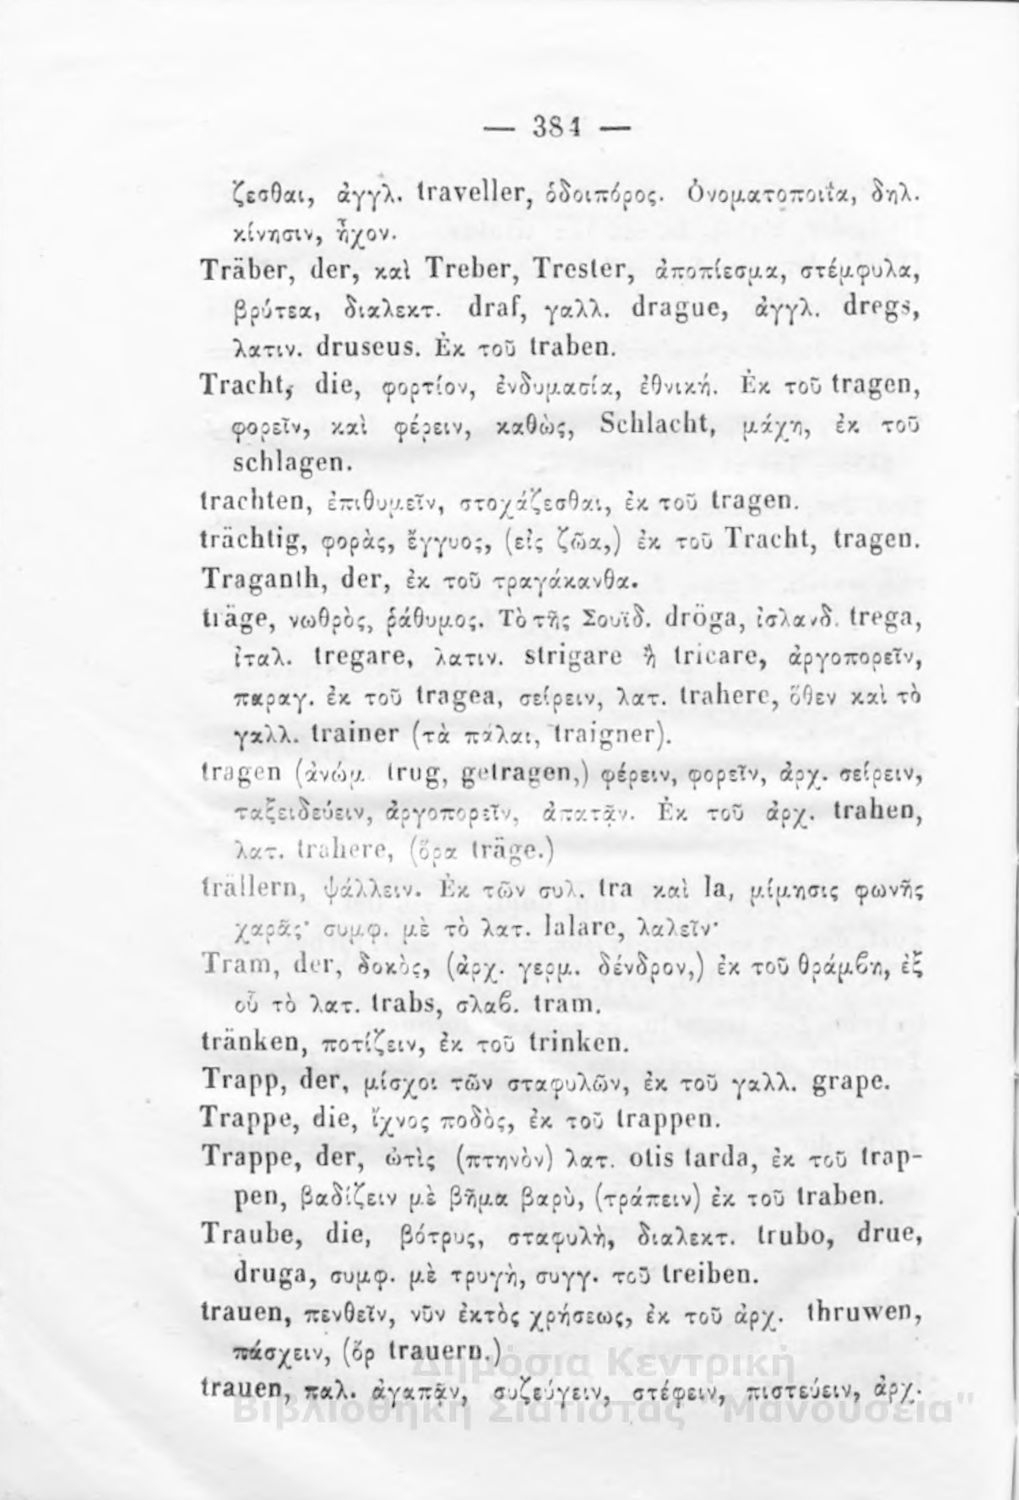 — 384 —
ζεσθαι, ἀγγλ. traveller, ὁδοιπόρος. Ὀνοματοποιΐα, δηλ.
κίνησιν, ἦχον.
Träber, der, καὶ Treber, Trester, ἀποπίεσμα, στέμφυλα,
βρύτεα, διαλεκτ. draf, γαλλ. drague, ἀγγλ. dregs,
λατιν. druseus. Ἐκ τοῦ traben.
Tracht, die, φορτίον, ἐνδυμασία, ἐθνική. Ἐκ τοῦ tragen,
φορεῖν, καὶ φέρειν, καθὼς, Schlacht, μάχη, ἐκ τοῦ
schlagen.
trachten, ἐπιθυμεῖν, στοχάζεσθαι, ἐκ τοῦ tragen.
trächtig, φορὰς, ἔγγυος, (εἰς ζῶα,) ἐκ τοῦ Tracht, tragen.
Traganth, der, ἐκ τοῦ τραγάκανθα.
träge, νωθρὸς, ῥάθυμος. Τὸ τῆς Σουϊδ. dröga, ἰσλανδ. trega,
ἰταλ. tregare, λατιν. strigare ἢ tricare, ἀργοπορεῖν,
παραγ. ἐκ τοῦ tragea, σείρειν, λατ. trahere, ὅθεν καὶ τὸ
γαλλ. trainer (τὰ πάλαι, traigner).
tragen (ἀνώμ. trug, getragen,) φέρειν, φορεῖν, ἀρχ. σείρειν,
ταξειδεύειν, ἀργοπορεῖν, ἀπατᾷν. Ἐκ τοῦ ἀρχ. trahen,
λατ. trahere, (ὅρα träge.)
trällern, ψάλλειν. Ἐκ τῶν συλ. tra καὶ la, μίμησις φωνῆς
χαρᾶς· συμφ. μὲ τὸ λατ. lalare, λαλεῖν·
Tram, der, δοκὸς, (ἀρχ. γερμ. δένδρον,) ἐκ τοῦ θράμβη, ἐξ
οὗ τὸ λατ. trabs, σλαβ. tram.
tränken, ποτίζειν, ἐκ τοῦ trinken.
Trapp, der, μίσχοι τῶν σταφυλῶν, ἐκ τοῦ γαλλ. grape.
Trappe, die, ἴχνος ποδὸς, ἐκ τοῦ trappen.
Trappe, der, ὠτὶς (πτηνὸν) λατ. otis tarda, ἐκ τοῦ trap-
pen, βαδίζειν μὲ βῆμα βαρὺ, (τράπειν) ἐκ τοῦ traben.
Traube, die, βότρυς, σταφυλὴ, διαλεκτ. trubo, drue,
druga, συμφ. μὲ τρυγὴ, συγγ. τοῦ treiben.
trauen, πενθεῖν, νῦν ἐκτὸς χρήσεως, ἐκ τοῦ ἀρχ. thruwen,
πάσχειν, (ὅρ trauern.)
trauen, παλ. ἀγαπᾷν, συζεύγειν, στέφειν, πιστεύειν, ἀρχ.
Δημόσια Κεντρική
Βιβλιοθήκη Σιάτιστας "Μανούσεια"